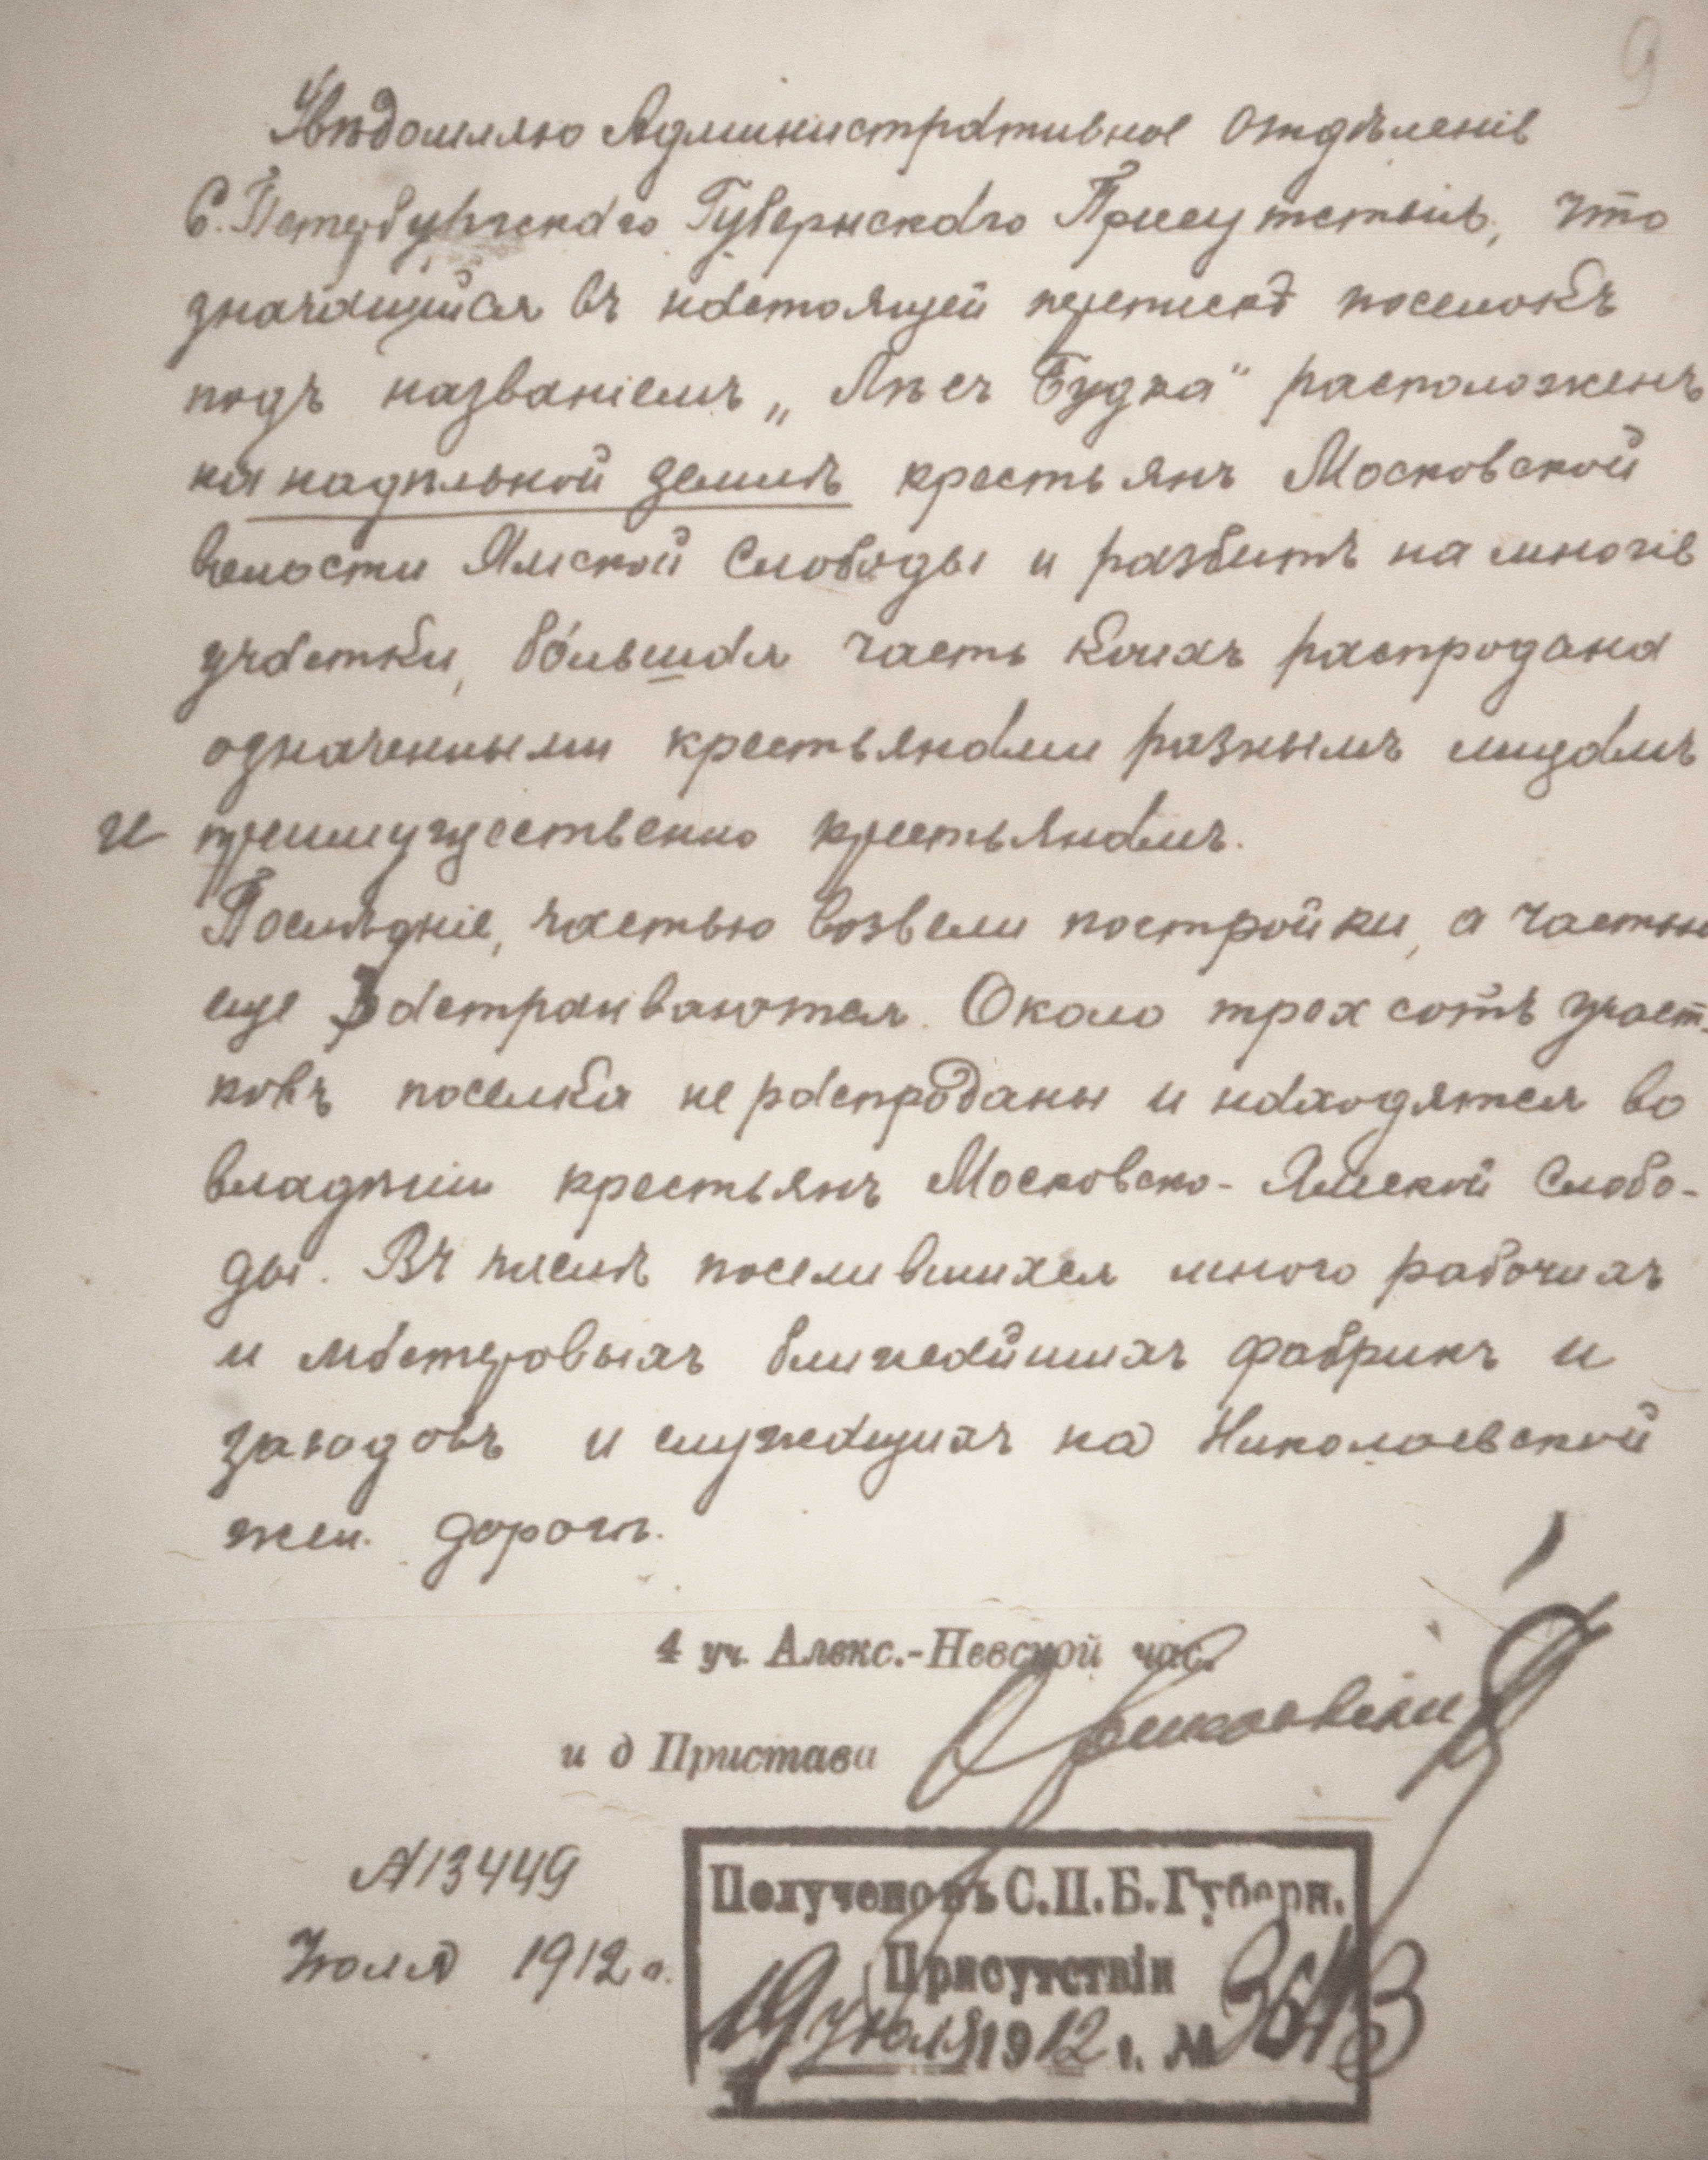 9
Увѣдомляю Административное Отдѣленіе
С.Петербургскаго Губернскаго Присутствія, что
значащийся въ настоящей перепискѣ поселокъ
подъ названіемъ „Лѣсъ Будка" расположенъ
на надѣльной землѣ крестьянъ Московской
волости Ямской Слободы и разбитъ на многіе
участки, бо́льшая часть коихъ распродана
означенными крестьянами разнымъ лицамъ
и преимущественно крестьянамъ.
Послѣдніе, частью возвели постройки, а частью
еще застраиваются. Около трехсотъ участ-
ковъ поселка не распроданы и находятся во
владѣніи крестьянъ Московско-Ямской Слобо-
ды. Въ числѣ поселившихся много рабочихъ
и мастеровыхъ ближайшихъ фабрикъ и
заводовъ и служащихъ на Николаевской
жел. дорогѣ.
4 уч. Алекс.-Невской час.
и д Пристава
№13449
Іюля 1912 г.
Получено въ С.П.Б. Губерн.
Присутствіи
19 Іюля 1912 г. №